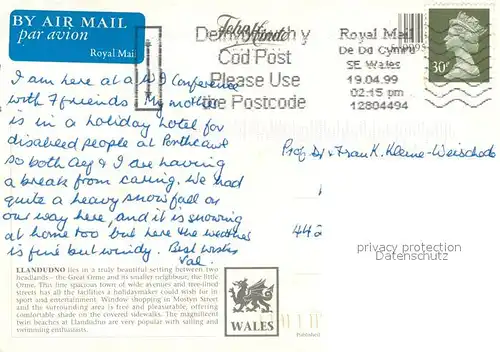 BY AIR MAIL
par avion
Royal Mail
John Hinde
Cod Post
Please Use
the Postcode
Royal Mail
De Dd Cymru
SE Wales
19.04.99
02:15 pm
12804494
30P
I am here at a Conference
with 7 friends My mother
is in a holiday hotel for
disabled people at Porthcawl
so both & I are having
a break from caring. We had
quite a heavy snow fall on
our way here, and it is snowing
at home too but here the weather
is fine but windy. Best wishes
Val.
Prof. Dr. + Frau K. Kleine-Weischede
442
privacy protection
Datenschutz
LLANDUDNO lies in a truly beautiful setting between two
headlands – the Great Orme and its smaller neighbour, the little
Orme. This fine spacious town of wide avenues and tree-lined
streets has all the facilities a holidaymaker could wish for in
sport and entertainment. Window shopping in Mostyn Street
and the surrounding area is free and pleasurable, offering
comfortable shade on the covered sidewalks. The magnificent
twin beaches at Llandudno are very popular with sailing and
swimming enthusiasts.
WALES
Published